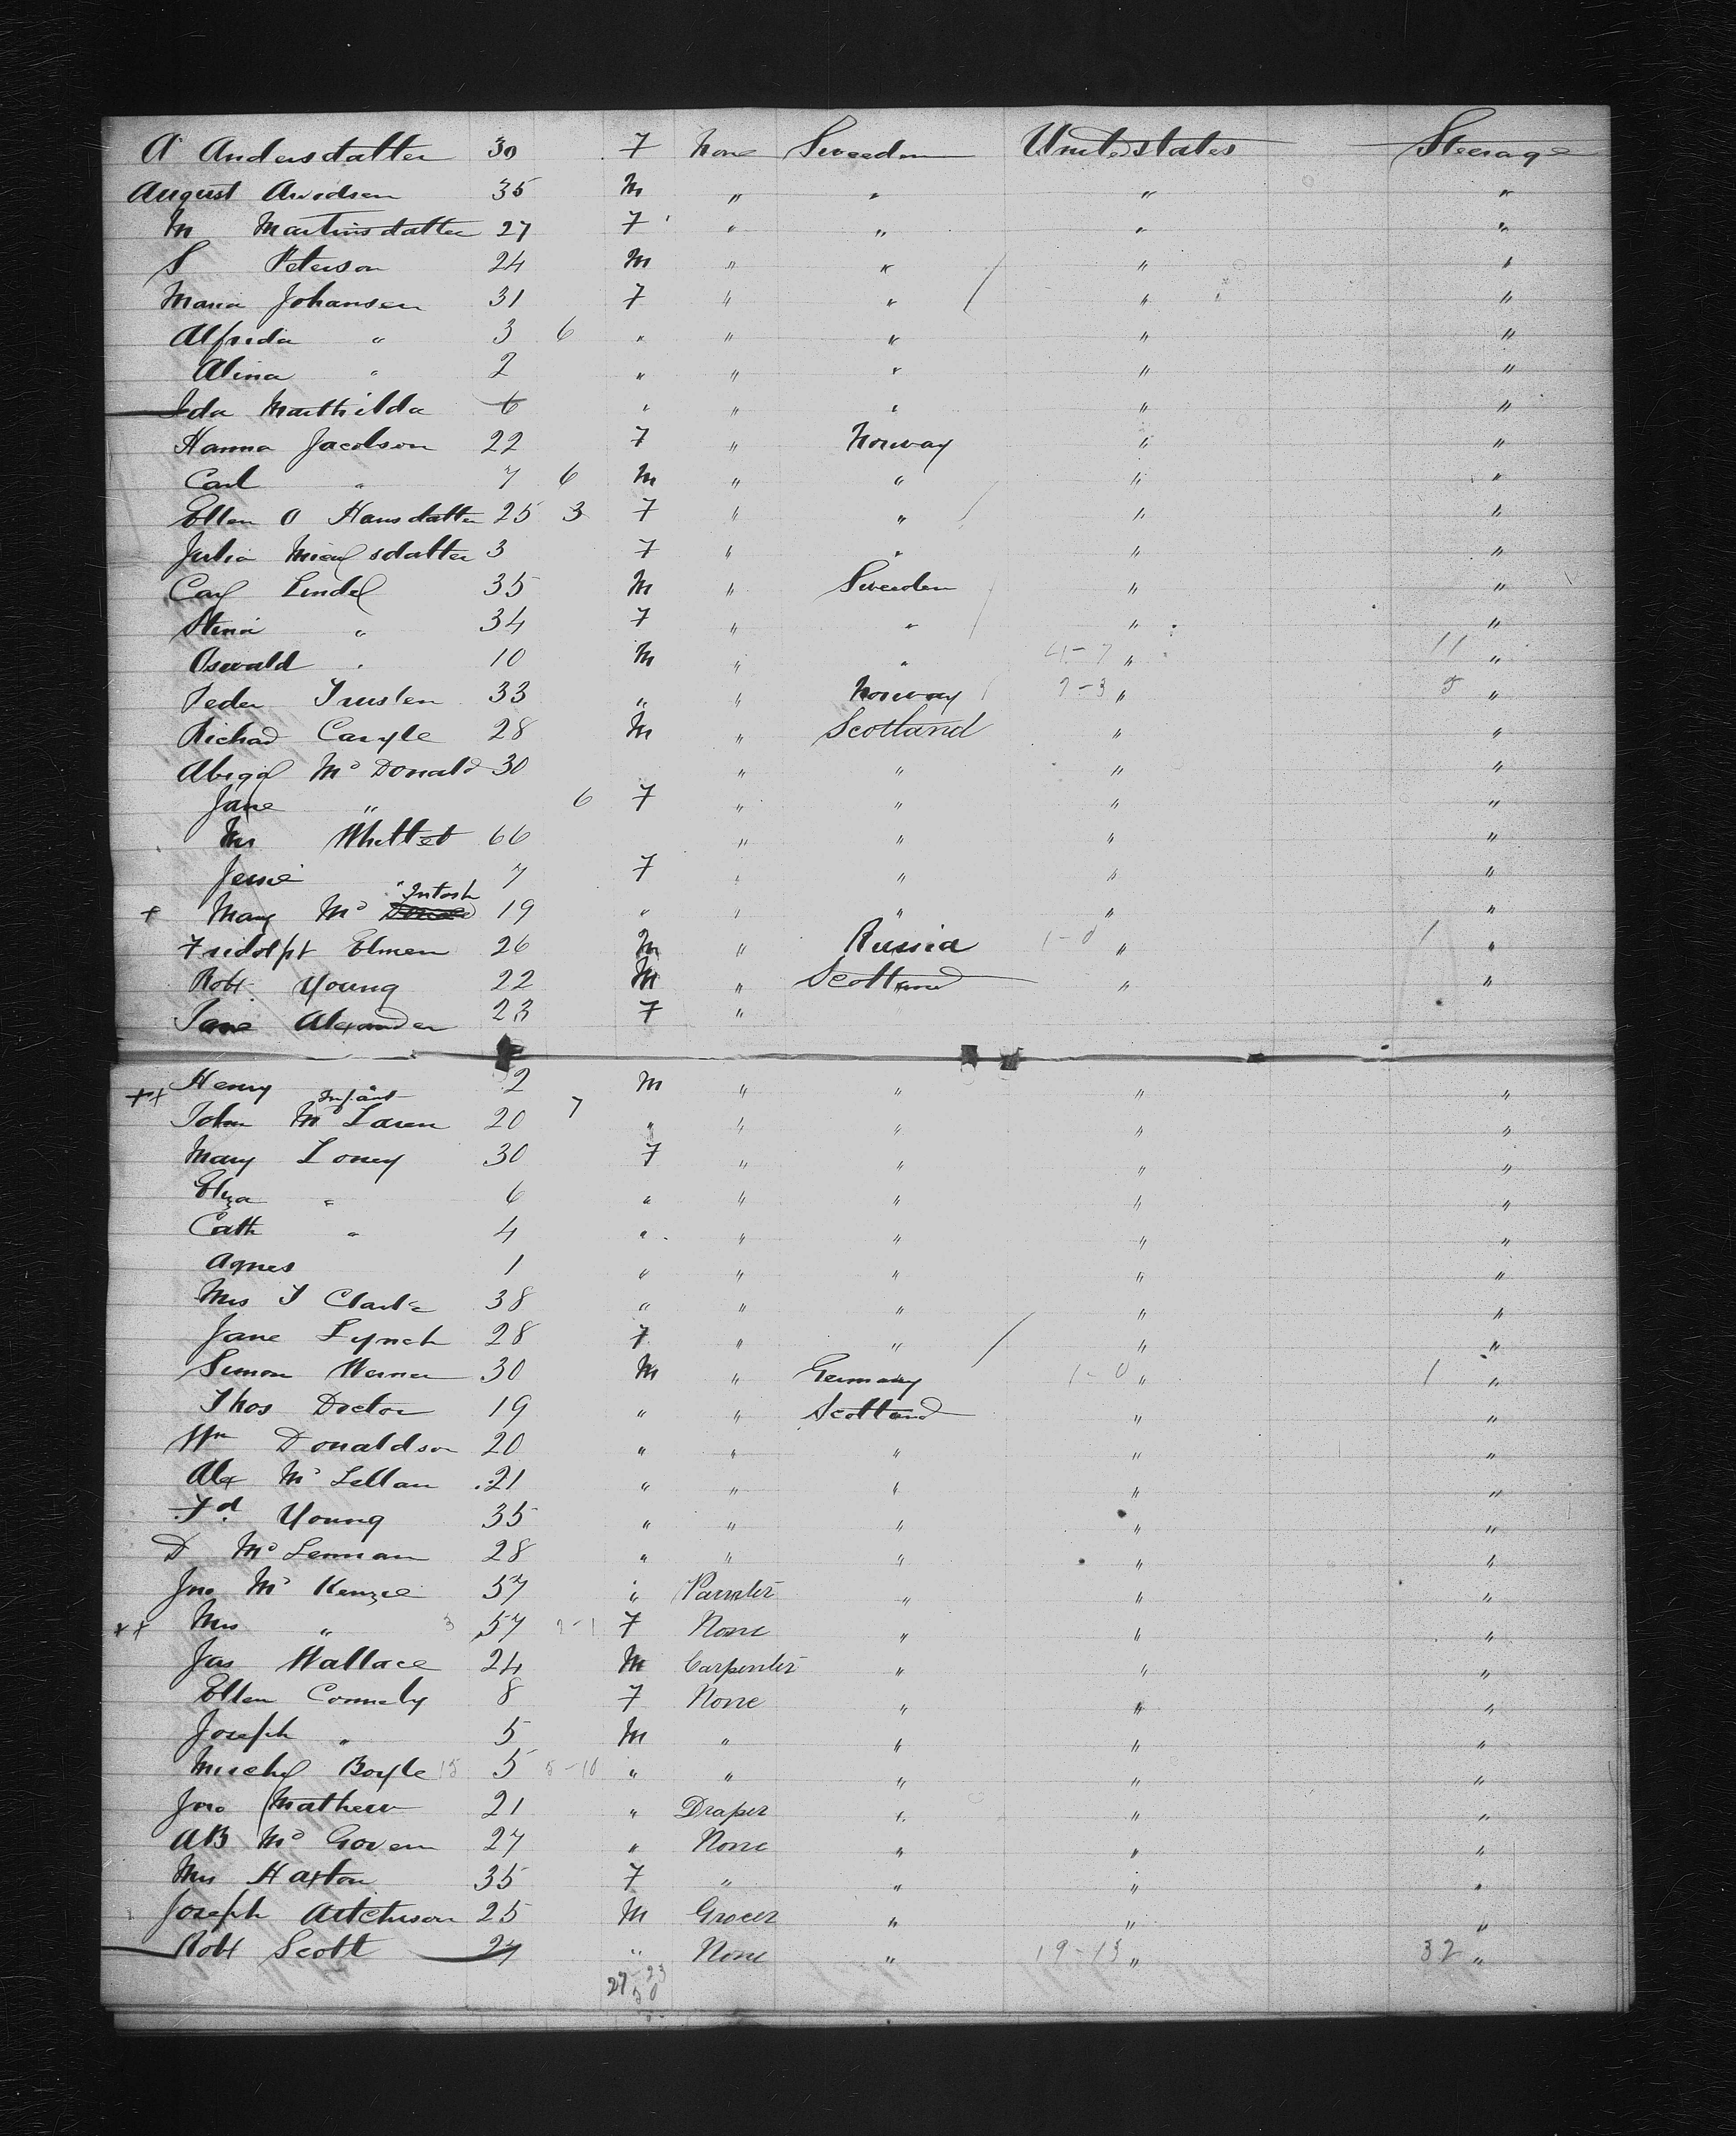 A Andersdatter 30 F None Sweeden United states Steerage
August Arvidsen 35 M " " " "
M Martinsdatter 27 F " " " "
S Peterson 24 M " " " "
Maria Johansen 31 F " " " "
Alfrida " 3 6 " " " " "
Alina " 2 " " " " "
Ida Mathilda 6 " " " " "
Hanna Jacobson 22 F " Norway " "
Carl " 7 6 M " " " "
Ellen O Hansdatter 25 3 F " " " "
Julia 3 F " " " "
Carl Lindel 35 M " Sweeden " "
Stina " 34 F " " " "
Oswald " 10 M " " 4-7 " 11 "
Peder 33 " " Norway 2-3 " 5 "
Richad Caryle 28 M " Scotland " "
Abigal Mc Donald 30 " " " "
Jane " 6 F " " " "
Mrs Whittet 66 " " " "
Jessie 7 F " " " "
+ Mary Mc Intosh 19 " " " " "
Fridolph Elmen 26 M " Russia 1-0 " 1 "
Robt Young 22 M " Scotland " "
Jane Alexander 23 F "
++ Henry 2 M " " " "
Infant
John Mc Laren 20 7 " " " " "
Mary Loney 30 F " " " "
Eliza " 6 " " " " "
Cath " 4 " " " " "
Agnes 1 " " " " "
Mrs J Clark 38 " " " " "
Jane Lynch 28 F " " " "
Simon Werner 30 M " Germany 1-0 " 1 "
Thos Doctor 19 " " Scotland " "
Wm Donaldson 20 " " " " "
Alex Mc Lellan 21 " " " " "
Fd Young 35 " " " " "
D Mc Lennan 28 " " " " "
Jno Mc Kenzie 57 " Painter " " "
++ Mrs " 3 57 2-1 F None " " "
Jas Wallace 24 M Carpenter " " "
Ellen Connely 8 F None " " "
Joseph " 5 M " " " "
Michel Boyle 15 5 5-10 " " " " "
Jno Mathew 21 " Draper " " "
AB Mc Govern 27 " None " " "
Mrs Haxton 35 F " " " "
Joseph Aitchison 25 M Grocer " " "
Robt Scott 27 " None " 19-13 " 32 "
27 23
50